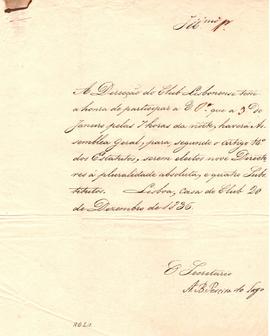 Illmo Sr.
A Direcção do Club Lisbonense tem
a honra de participar a V. Sa. que a 3 de
Janeiro pelas 7 horas da noite, haverá As-
semblea Geral, para, segundo o artigo 16º
dos Estatutos, serem eleitos nove Directo-
res à pluralidade absoluta, e quatro Subs-
titutos. Lisboa, casa do Club 20
de Dezembro de 1836.
O Secretario
A. B. Pereira do Lago